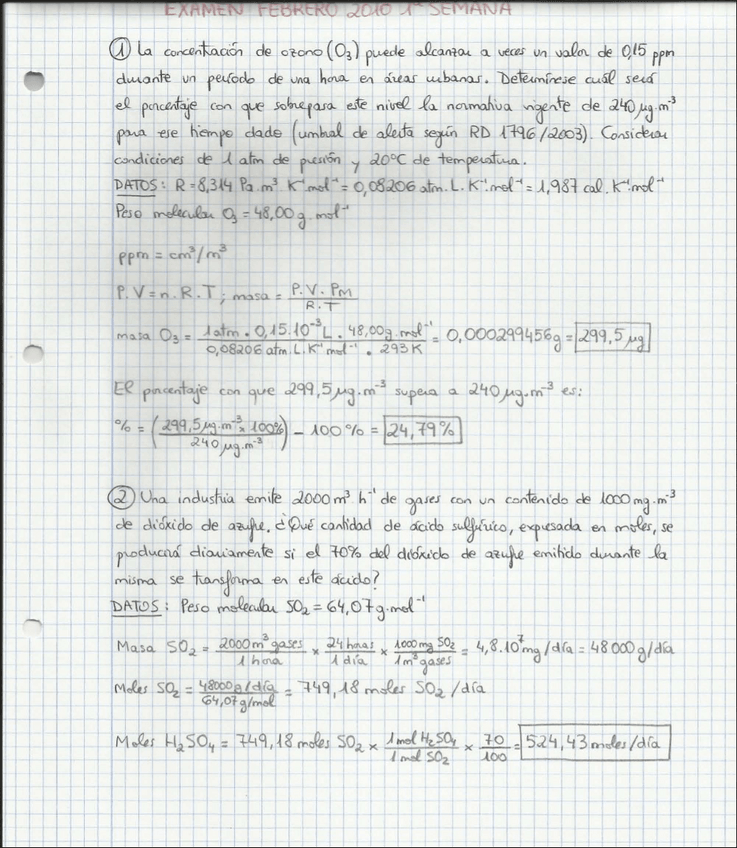 EXAMEN FEBRERO 2010 1ª SEMANA
① La concentración de ozono (O₃) puede alcanzar a veces un valor de 0,15 ppm
durante un período de una hora en áreas urbanas. Determínese cuál será
el porcentaje con que sobrepasa este nivel la normativa vigente de 240 µg.m⁻³
para ese tiempo dado (umbral de alerta según RD 1796/2003). Considerar
condiciones de 1 atm de presión y 20ºC de temperatura.
DATOS: R = 8,314 Pa.m³ K⁻¹.mol⁻¹ = 0,08206 atm.L.K⁻¹.mol⁻¹ = 1,987 cal.K⁻¹.mol⁻¹
Peso molecular O₃ = 48,00 g.mol⁻¹
ppm = cm³/m³
P.V = n.R.T ; masa = P.V.PM / R.T
masa O₃ = 1 atm . 0,15.10⁻³ L . 48,00 g.mol⁻¹ / 0,08206 atm.L.K⁻¹ mol⁻¹ . 293 K = 0,000299456 g = 299,5 µg
El porcentaje con que 299,5 µg.m⁻³ supera a 240 µg.m⁻³ es:
% = (299,5 µg.m⁻³ x 100% / 240 µg.m⁻³) - 100% = 24,79%
② Una industria emite 2000 m³ h⁻¹ de gases con un contenido de 1000 mg.m⁻³
de dióxido de azufre. ¿Qué cantidad de ácido sulfúrico, expresada en moles, se
producirá diariamente si el 70% del dióxido de azufre emitido durante la
misma se transforma en este ácido?
DATOS: Peso molecular SO₂ = 64,07 g.mol⁻¹
Masa SO₂ = 2000 m³ gases / 1 hora x 24 horas / 1 día x 1000 mg SO₂ / 1 m³ gases = 4,8.10⁷ mg/día = 48000 g/día
Moles SO₂ = 48000 g/día / 64,07 g/mol = 749,18 moles SO₂/día
Moles H₂SO₄ = 749,18 moles SO₂ x 1 mol H₂SO₄ / 1 mol SO₂ x 70 / 100 = 524,43 moles/día